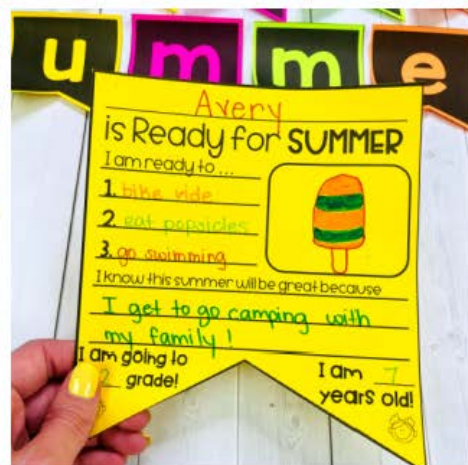 u m m e
Avery
is Ready for SUMMER
I am ready to ...
1. bike ride
2. eat popsicles
3. go swimming
I know this summer will be great because
I get to go camping with
my family!
I am going to
2 grade!
I am 7
years old!